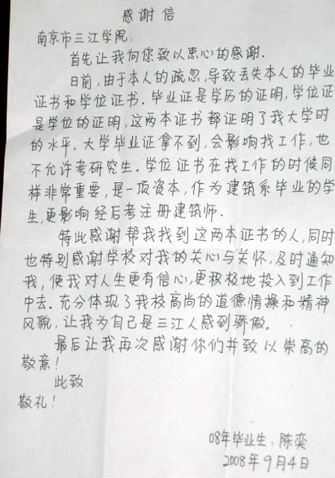 感谢信
南京市三江学院:
首先让我向您致以忠心的感谢.
日前,由于本人的疏忽,导致丢失本人的毕业
证书和学位证书.毕业证是学历的证明,学位证
是学位的证明,这两本证书都证明了我大学时
的水平.大学毕业证拿不到,会影响找工作,也
不允许考研究生.学位证书在找工作的时候同
样非常重要,是一项资本,作为建筑系毕业的学
生,更影响经后考注册建筑师.
特此感谢帮我找到这两本证书的人,同时
也特别感谢学校对我的关心与关怀,及时通知
我,使我对人生更有信心,更积极地投入到工作
中去.充分体现了我校高尚的道德情操和精神
风貌,让我为自己是三江人感到骄傲.
最后让我再次感谢你们并致以崇高的
敬意!
此致
敬礼!
08年毕业生:陈奕
2008年9月4日